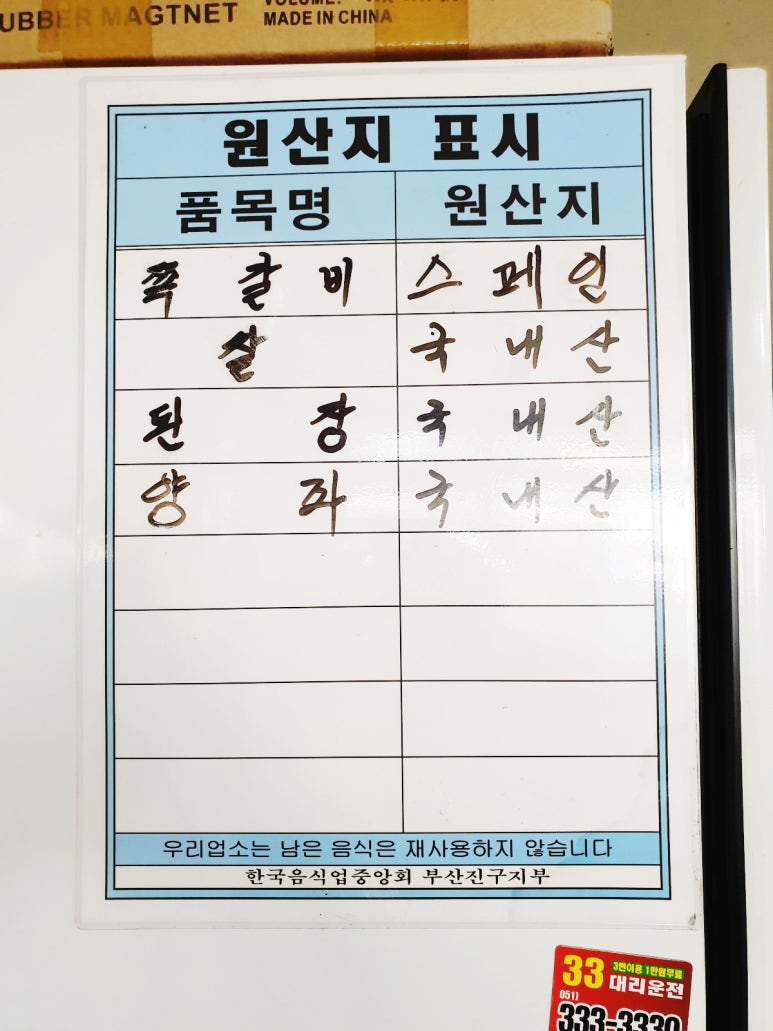 UBBER MAGTNET
MADE IN CHINA
원산지 표시
품목명 원산지
쪽갈비 스페인
쌀 국내산
된장 국내산
양파 국내산
우리업소는 남은 음식은 재사용하지 않습니다
한국음식업중앙회 부산진구지부
33 3번이용 1만원무료
대리운전
051)
333-3330